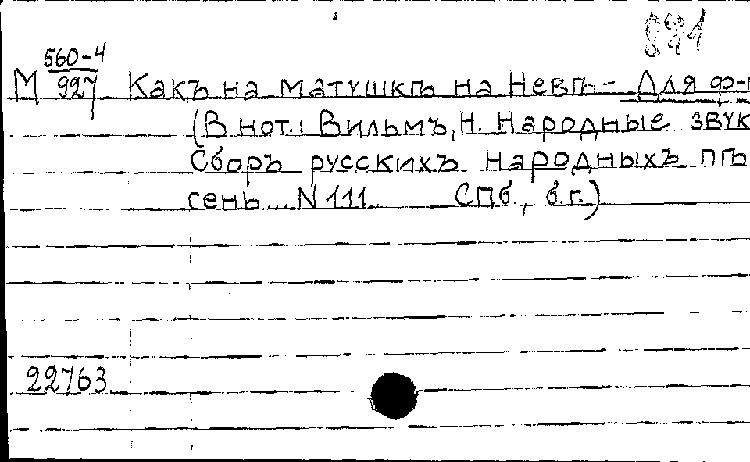 891
М 560-4/927 Какъ на матушкѣ на Невѣ - Для ф-
(В нот.: Вильмъ, Н. Народные звук
Сборъ русскихъ народныхъ пѣ
сень. N 111. Спб., б.г.)
22763